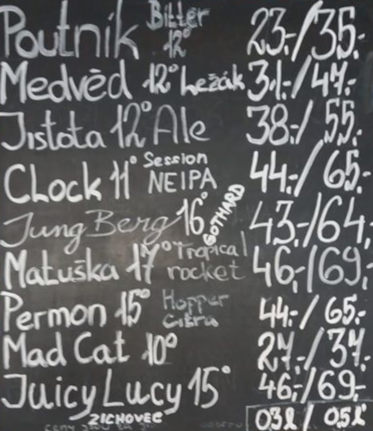 Poutník 12° Bitter 23,-/35,-
Medvěd 12° Ležák 31,-/47,-
Jistota 12° Ale 38,-/55,-
CLock 11° Session NEIPA 44,-/65,-
Jung Berg 16° GOTHARD 43,-/64,-
Matuška 17° Tropical rocket 46,-/69,-
Permon 15° Hopper Citra 44,-/65,-
Mad Cat 10° 27,-/37,-
Juicy Lucy 15° 46,-/69,-
ZICHOVEC 0,3l / 0,5l